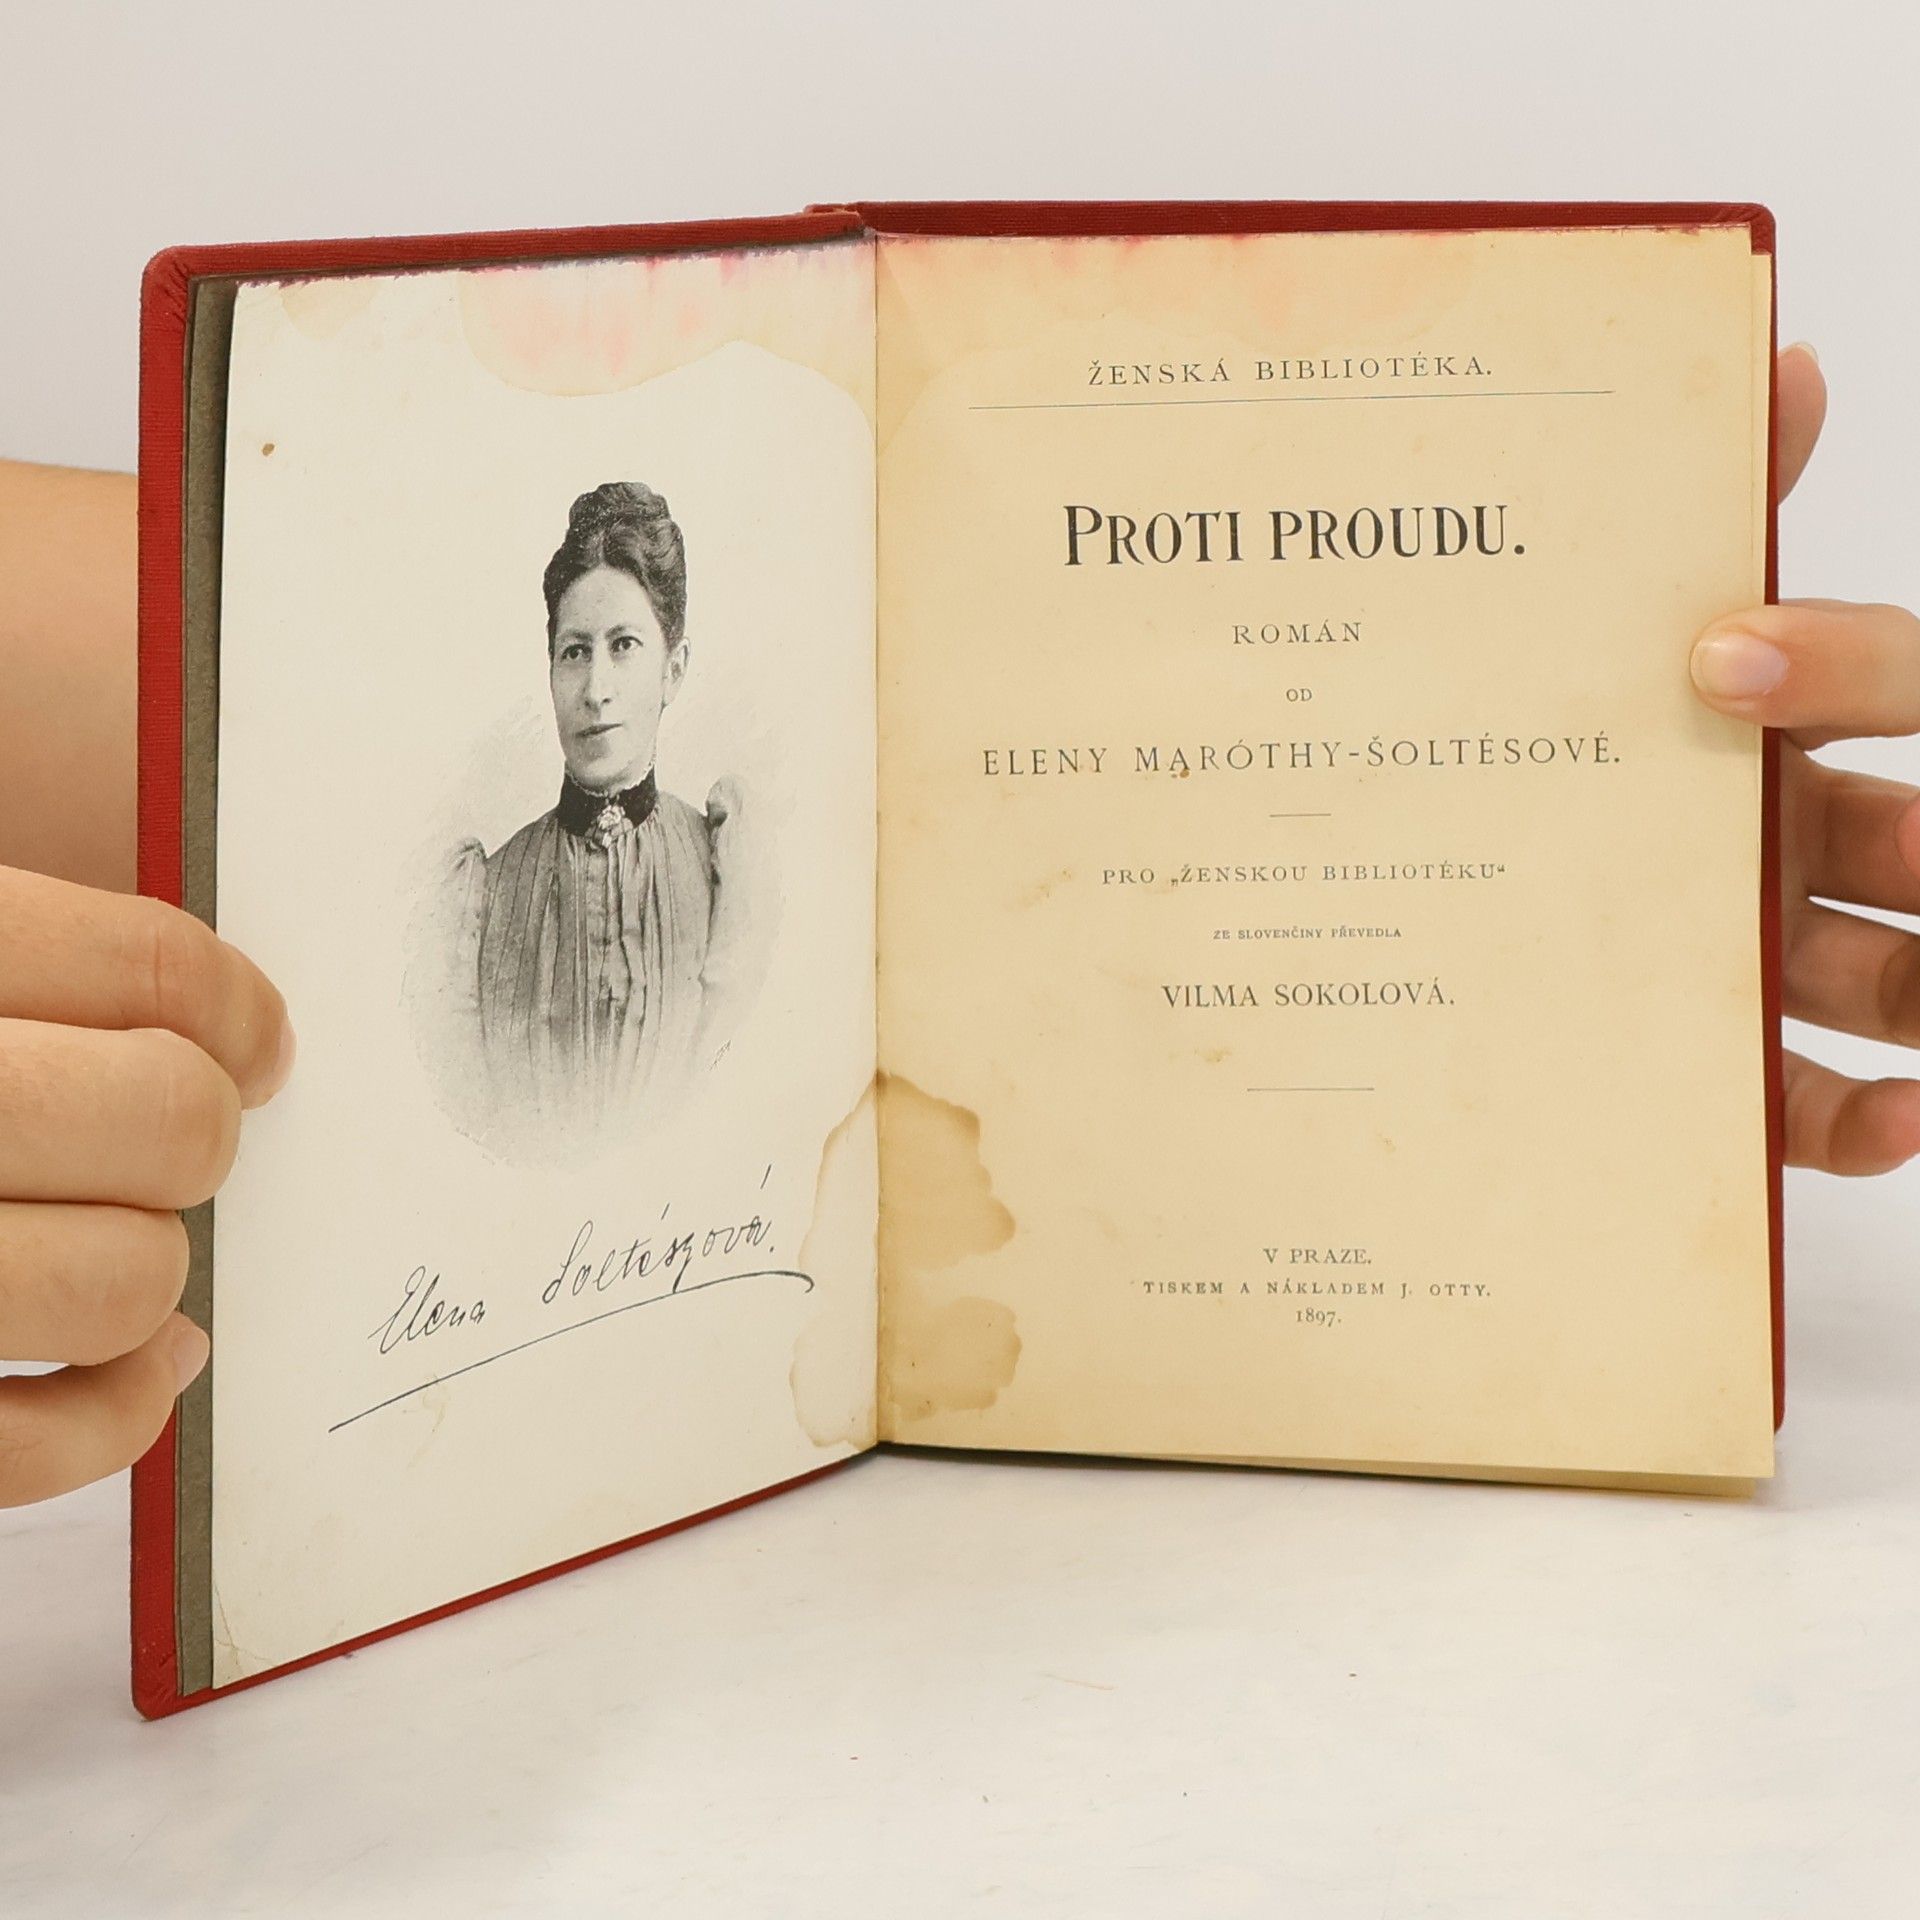 Elena Soltészová.
ŽENSKÁ BIBLIOTÉKA.
PROTI PROUDU.
ROMÁN
OD
ELENY MARÓTHY-ŠOLTÉSOVÉ.
PRO „ŽENSKOU BIBLIOTÉKU“
ZE SLOVENČINY PŘEVEDLA
VILMA SOKOLOVÁ.
V PRAZE.
TISKEM A NÁKLADEM J. OTTY.
1897.